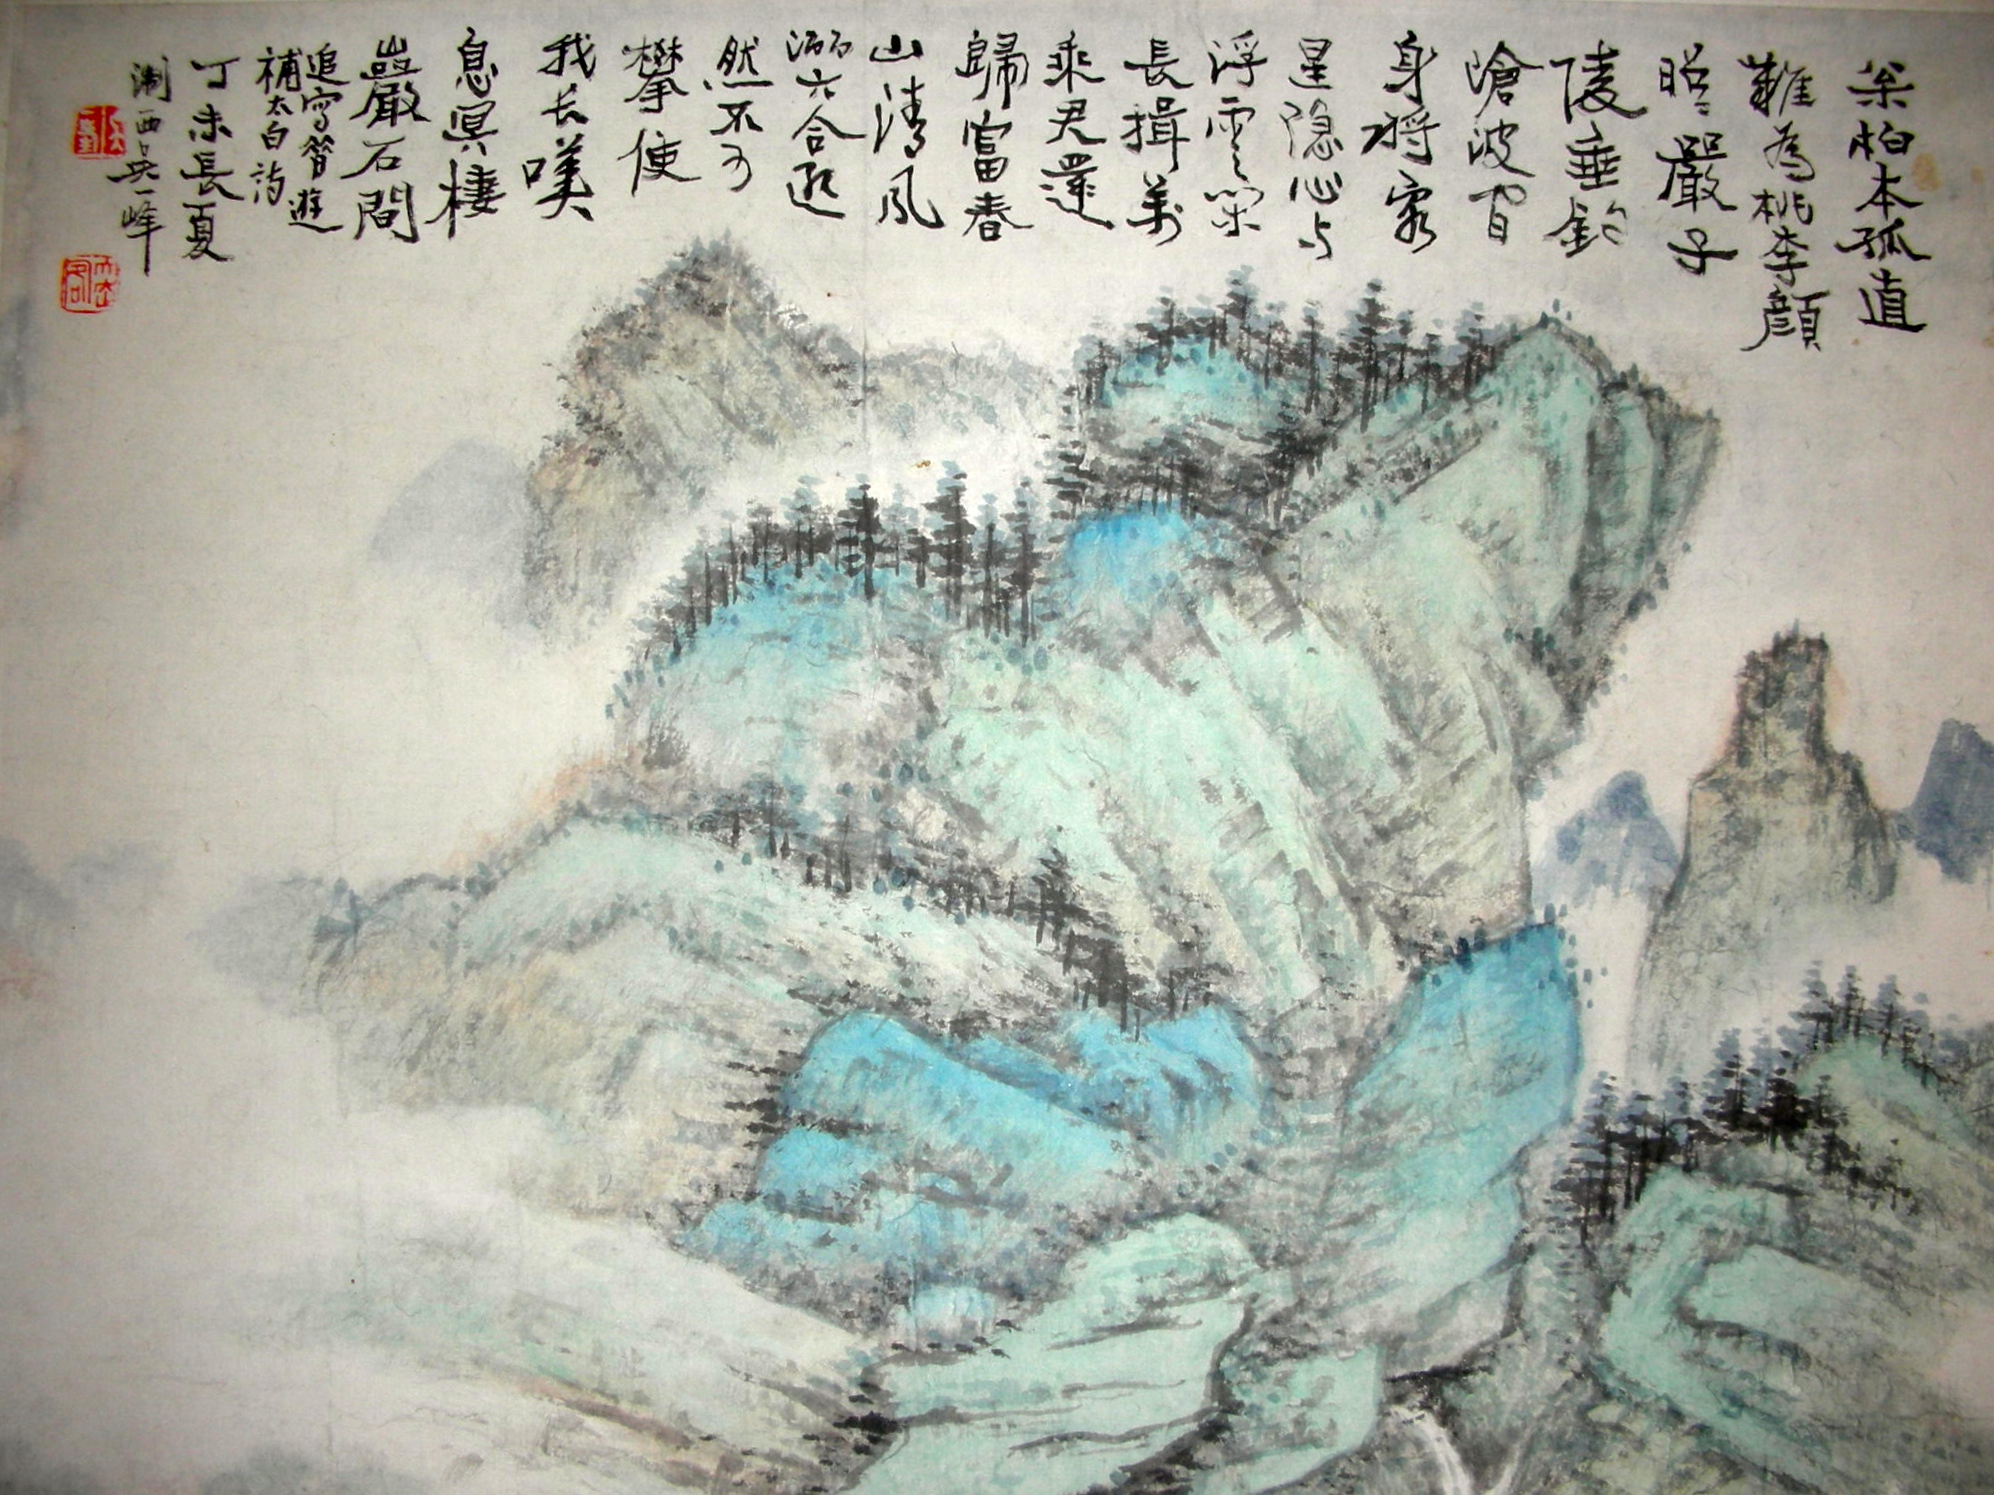 枀柏本孤直
難為桃李顏
昭〻嚴子
陵垂釣
滄波间
身將客
星隐心与
浮雲閑
長揖萬
乘君還
歸富春
山清风
灑六合邈
然不可
攀使
我长嘆
息冥棲
巖石間
追寫昔遊
補太白詩
丁未長夏
浙西吳一峰